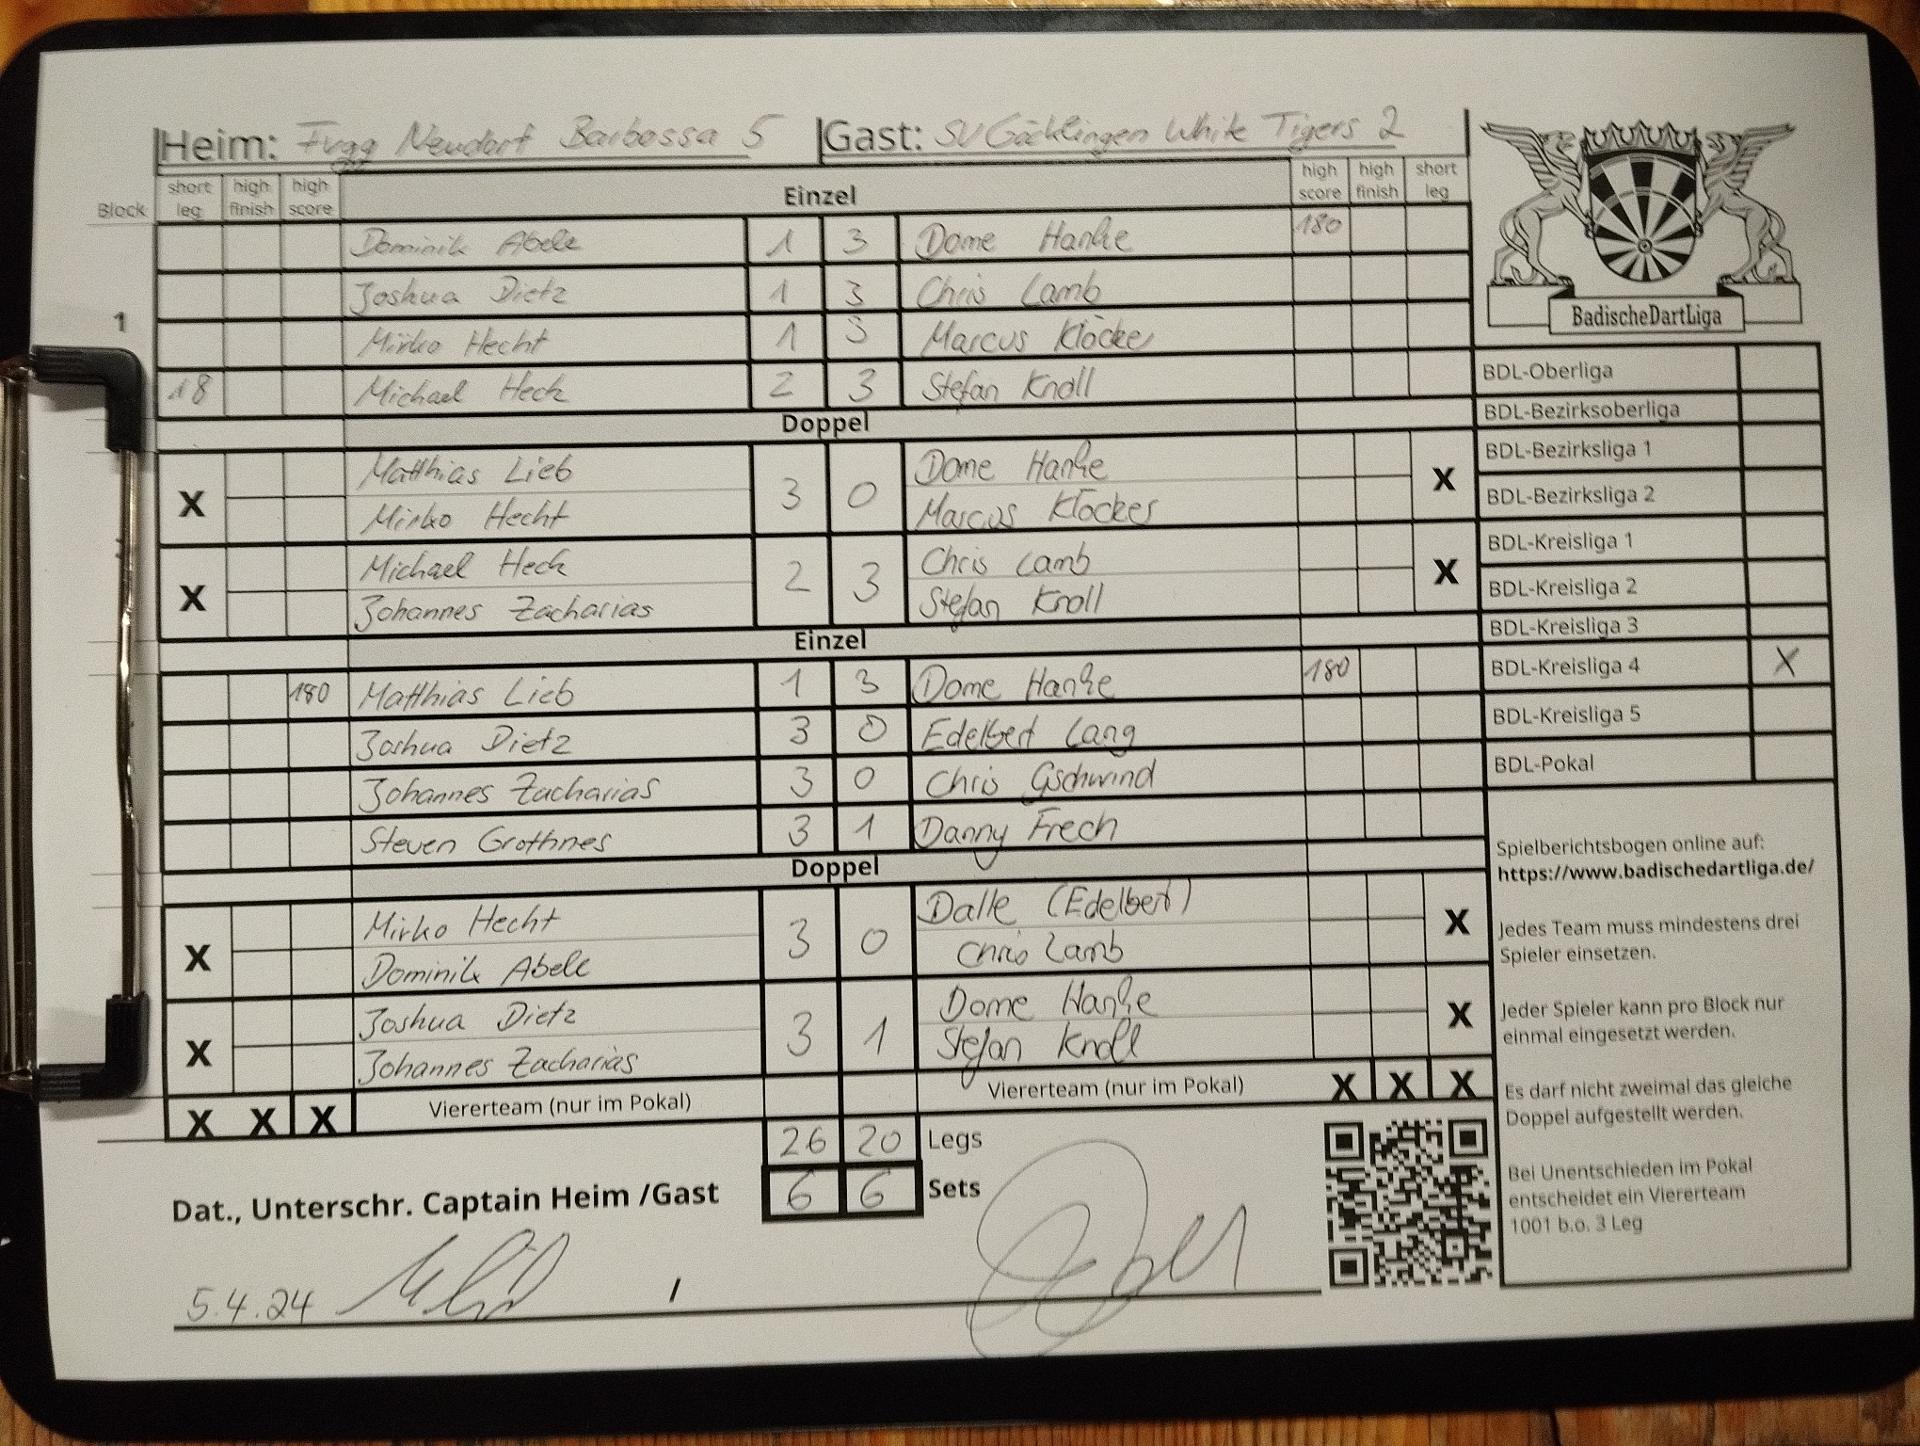 Heim: Fvgg Neudorf Barbossa 5 Gast: SV Göcklingen White Tigers 2
Block short leg high finish high score Einzel high score high finish short leg
Dominik Abele 1 3 Dome Hanke 180
Joshua Dietz 1 3 Chris Lamb
1
Mirko Hecht 1 3 Marcus Klöcker
18 Michael Heck 2 3 Stefan Knoll
Doppel
X Matthias Lieb 3 0 Dome Hanke X
Mirko Hecht Marcus Klöcker
X Michael Heck 2 3 Chris Lamb X
Johannes Zacharias Stefan Knoll
Einzel
180 Matthias Lieb 1 3 Dome Hanke 180
Joshua Dietz 3 0 Edelbert Lang
Johannes Zacharias 3 0 Chris Gschwind
Steven Grothnes 3 1 Danny Frech
Doppel
X Mirko Hecht 3 0 Dalle (Edelbert) X
Dominik Abele Chris Lamb
X Joshua Dietz 3 1 Dome Hanke X
Johannes Zacharias Stefan Knoll
X X X Viererteam (nur im Pokal) Viererteam (nur im Pokal) X X X
26 20 Legs
Dat., Unterschr. Captain Heim /Gast 6 6 Sets
5.4.24 /
BadischeDartLiga
BDL-Oberliga
BDL-Bezirksoberliga
BDL-Bezirksliga 1
BDL-Bezirksliga 2
BDL-Kreisliga 1
BDL-Kreisliga 2
BDL-Kreisliga 3
BDL-Kreisliga 4 X
BDL-Kreisliga 5
BDL-Pokal
Spielberichtsbogen online auf:
https://www.badischedartliga.de/
Jedes Team muss mindestens drei
Spieler einsetzen.
Jeder Spieler kann pro Block nur
einmal eingesetzt werden.
Es darf nicht zweimal das gleiche
Doppel aufgestellt werden.
Bei Unentschieden im Pokal
entscheidet ein Viererteam
1001 b.o. 3 Leg